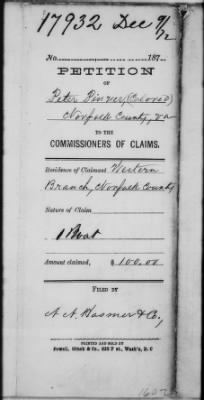 17932 Dec 9/72
No. 187
PETITION
OF
Peter (Colored)
Norfolk County, Va
TO THE
COMMISSIONERS OF CLAIMS.
Residence of Claimant Western
Branch, Norfolk County
Nature of Claim
1 Boat
Amount claimed, $100.00
FILED BY
& Co.,
PRINTED AND SOLD BY
Powell, & Co., F st., Wash'n, D. C